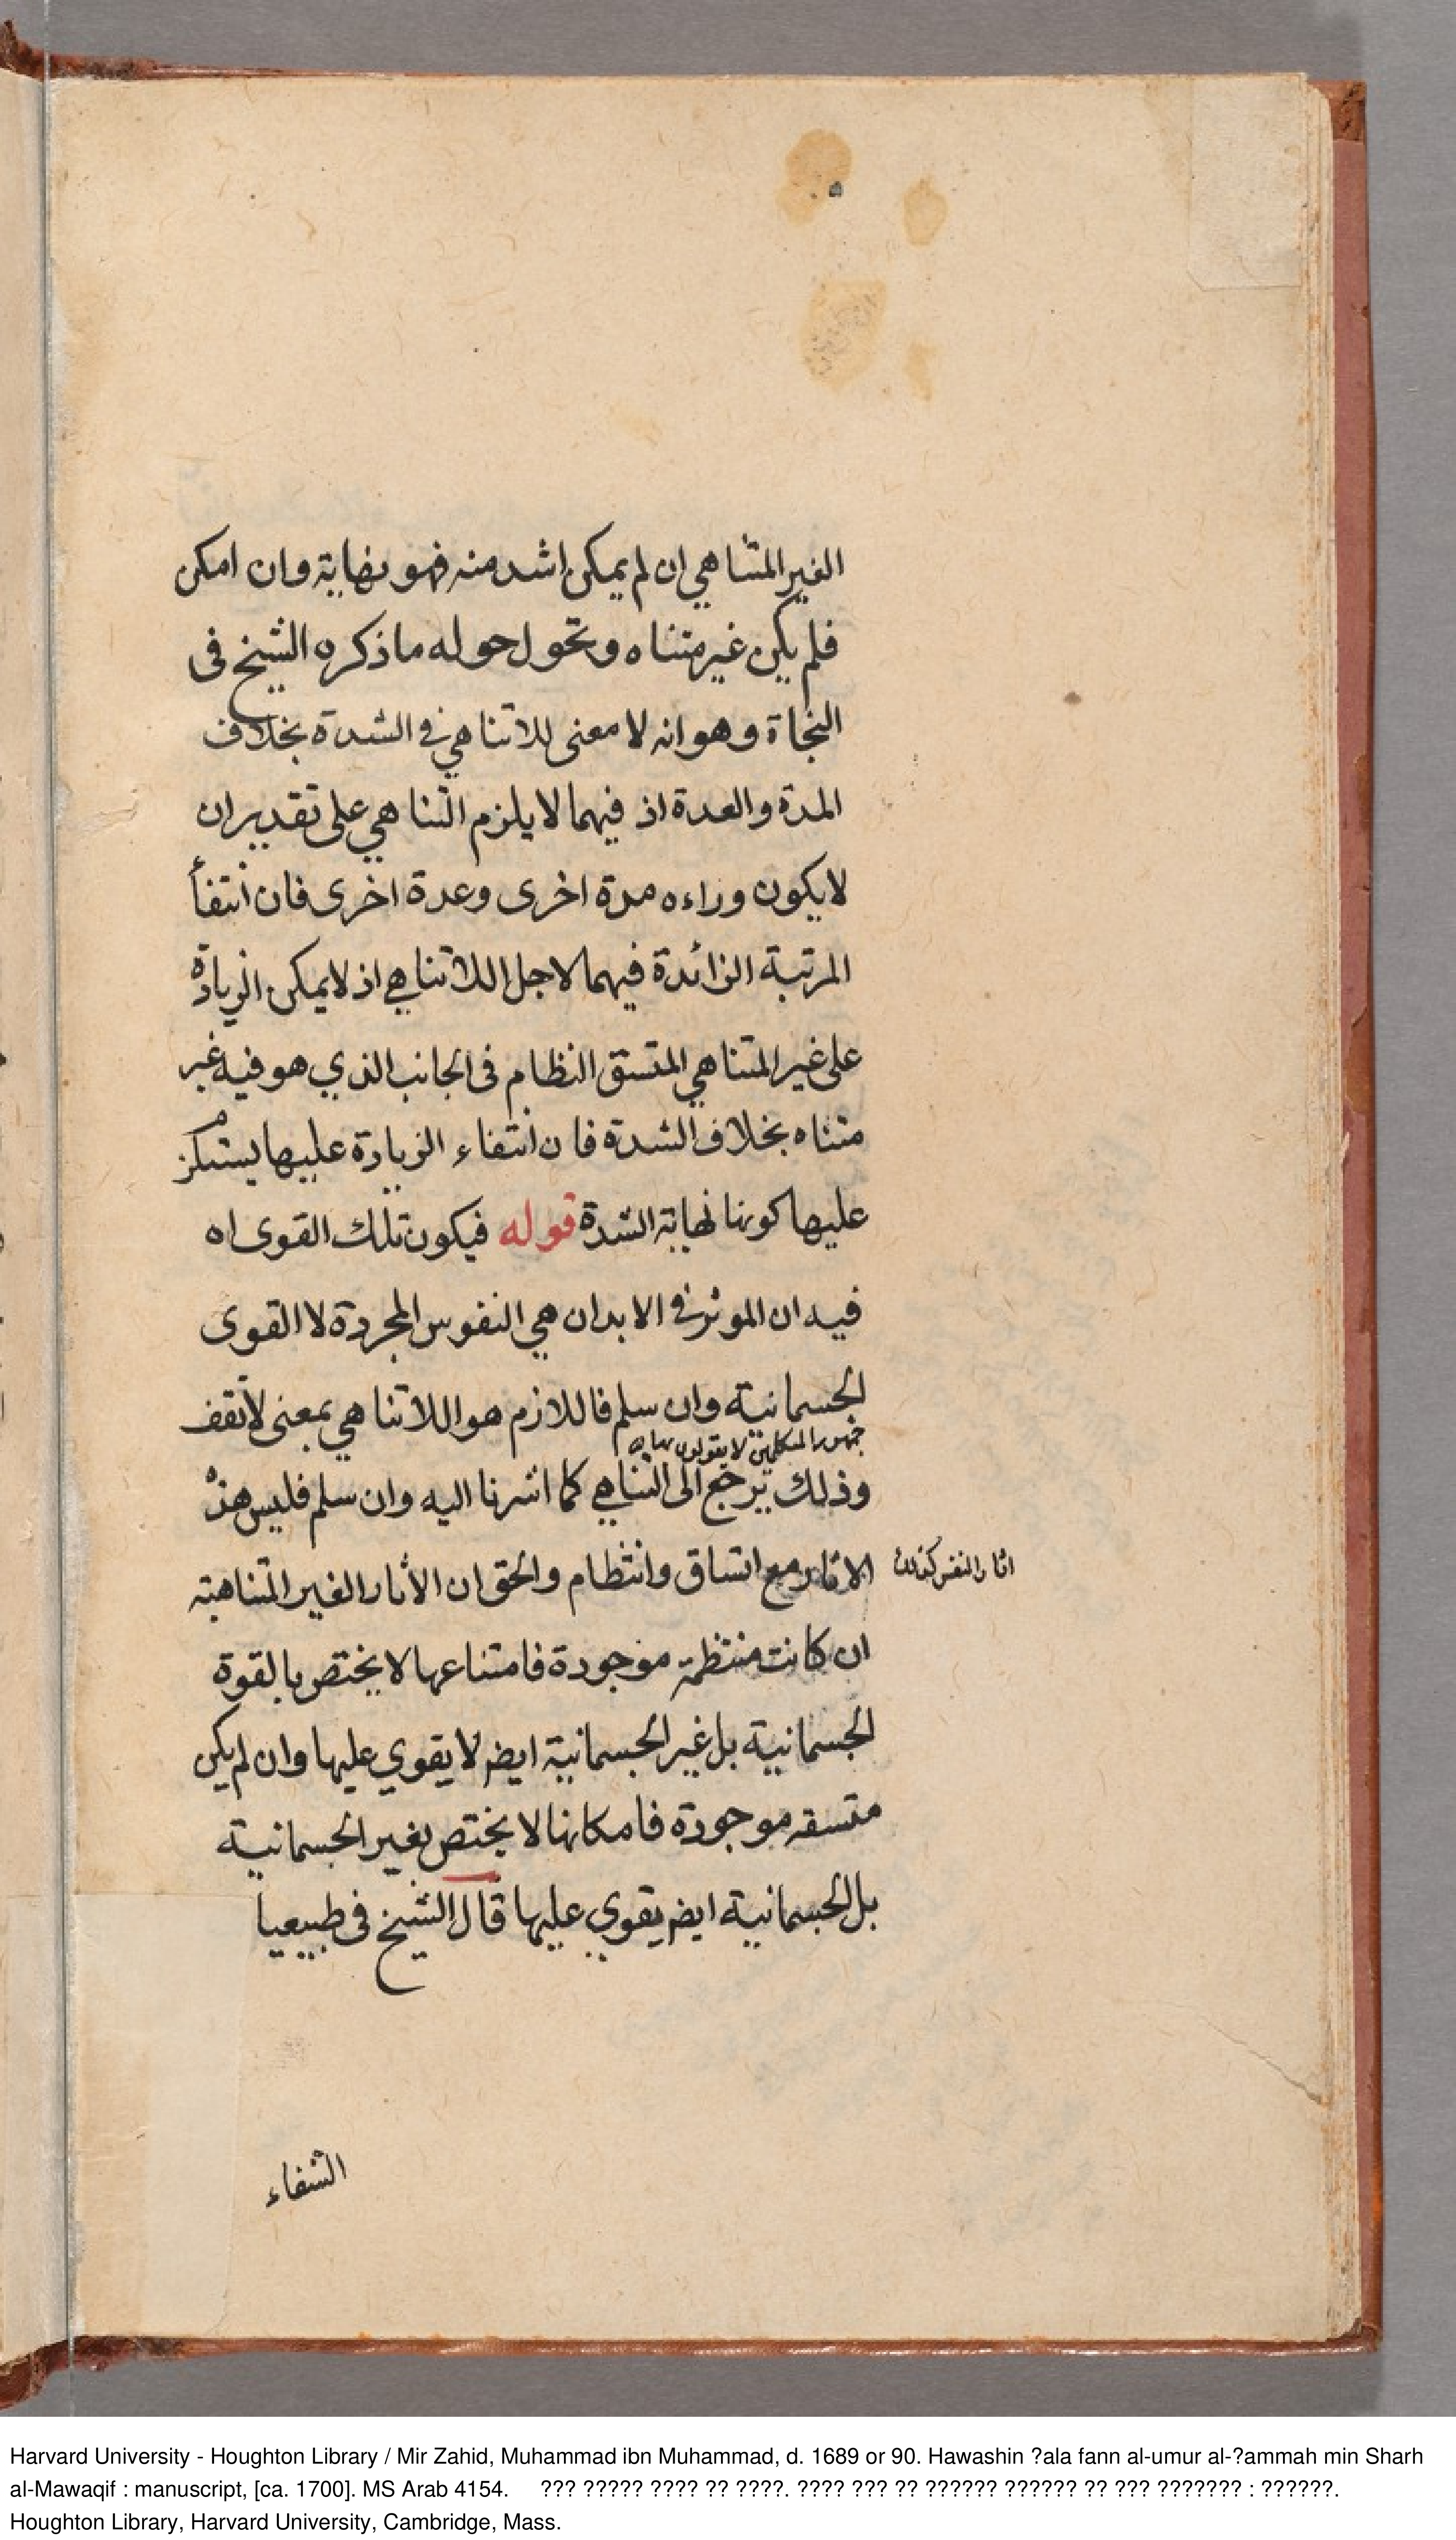 الغير المتناهي ان لم يمكن اشد منه فهو نهاية وان امكن
فلم يكن غير متناه ونحول حوله ما ذكره الشيخ فى
النجاة وهو انه لا معنى للاتناهي في الشدة بخلاف
المدة والعدة اذ فيهما لا يلزم التناهي على تقدير ان
لا يكون وراءه مدة اخرى وعدة اخرى فان انتفأ
المرتبة الزائدة فيهما لاجل اللاتناهي اذ لا يمكن الزيادة
على غير المتناهي المتسق النظام فى الجانب الذي هو فيه غير
متناه بخلاف الشدة فان انتفاء الزيادة عليها
عليها كونها نهاية الشدة قوله فيكون تلك القوى اه
فيه ان الموثر في الابدان هي النفوس المجردة لا القوى
الجسمانية وان سلم فاللازم هو اللاتناهي بمعنى لا تقف
جمهور المتكلمين لا يقولون بها
وذلك يرجع الى التناهي كما اشرنا اليه وان سلم فليس هذه
الاثار مع اتساق وانتظام والحق ان الأثار الغير المتناهية
اثار النفس كذلك
ان كانت منتظمة موجودة فامتناعها لا يختص بالقوة
الجسمانية بل غير الجسمانية ايضا لا يقوي عليها وان لم يكن
متسقه موجودة فامكانها لا يختص بغير الجسمانية
بل الجسمانية ايضا يقوي عليها قال الشيخ فى طبيعيا
الشفاء
Harvard University - Houghton Library / Mir Zahid, Muhammad ibn Muhammad, d. 1689 or 90. Hawashin ?ala fann al-umur al-?ammah min Sharh
al-Mawaqif : manuscript, [ca. 1700]. MS Arab 4154. ??? ????? ???? ?? ????. ???? ??? ?? ?????? ?????? ?? ??? ??????? : ??????.
Houghton Library, Harvard University, Cambridge, Mass.